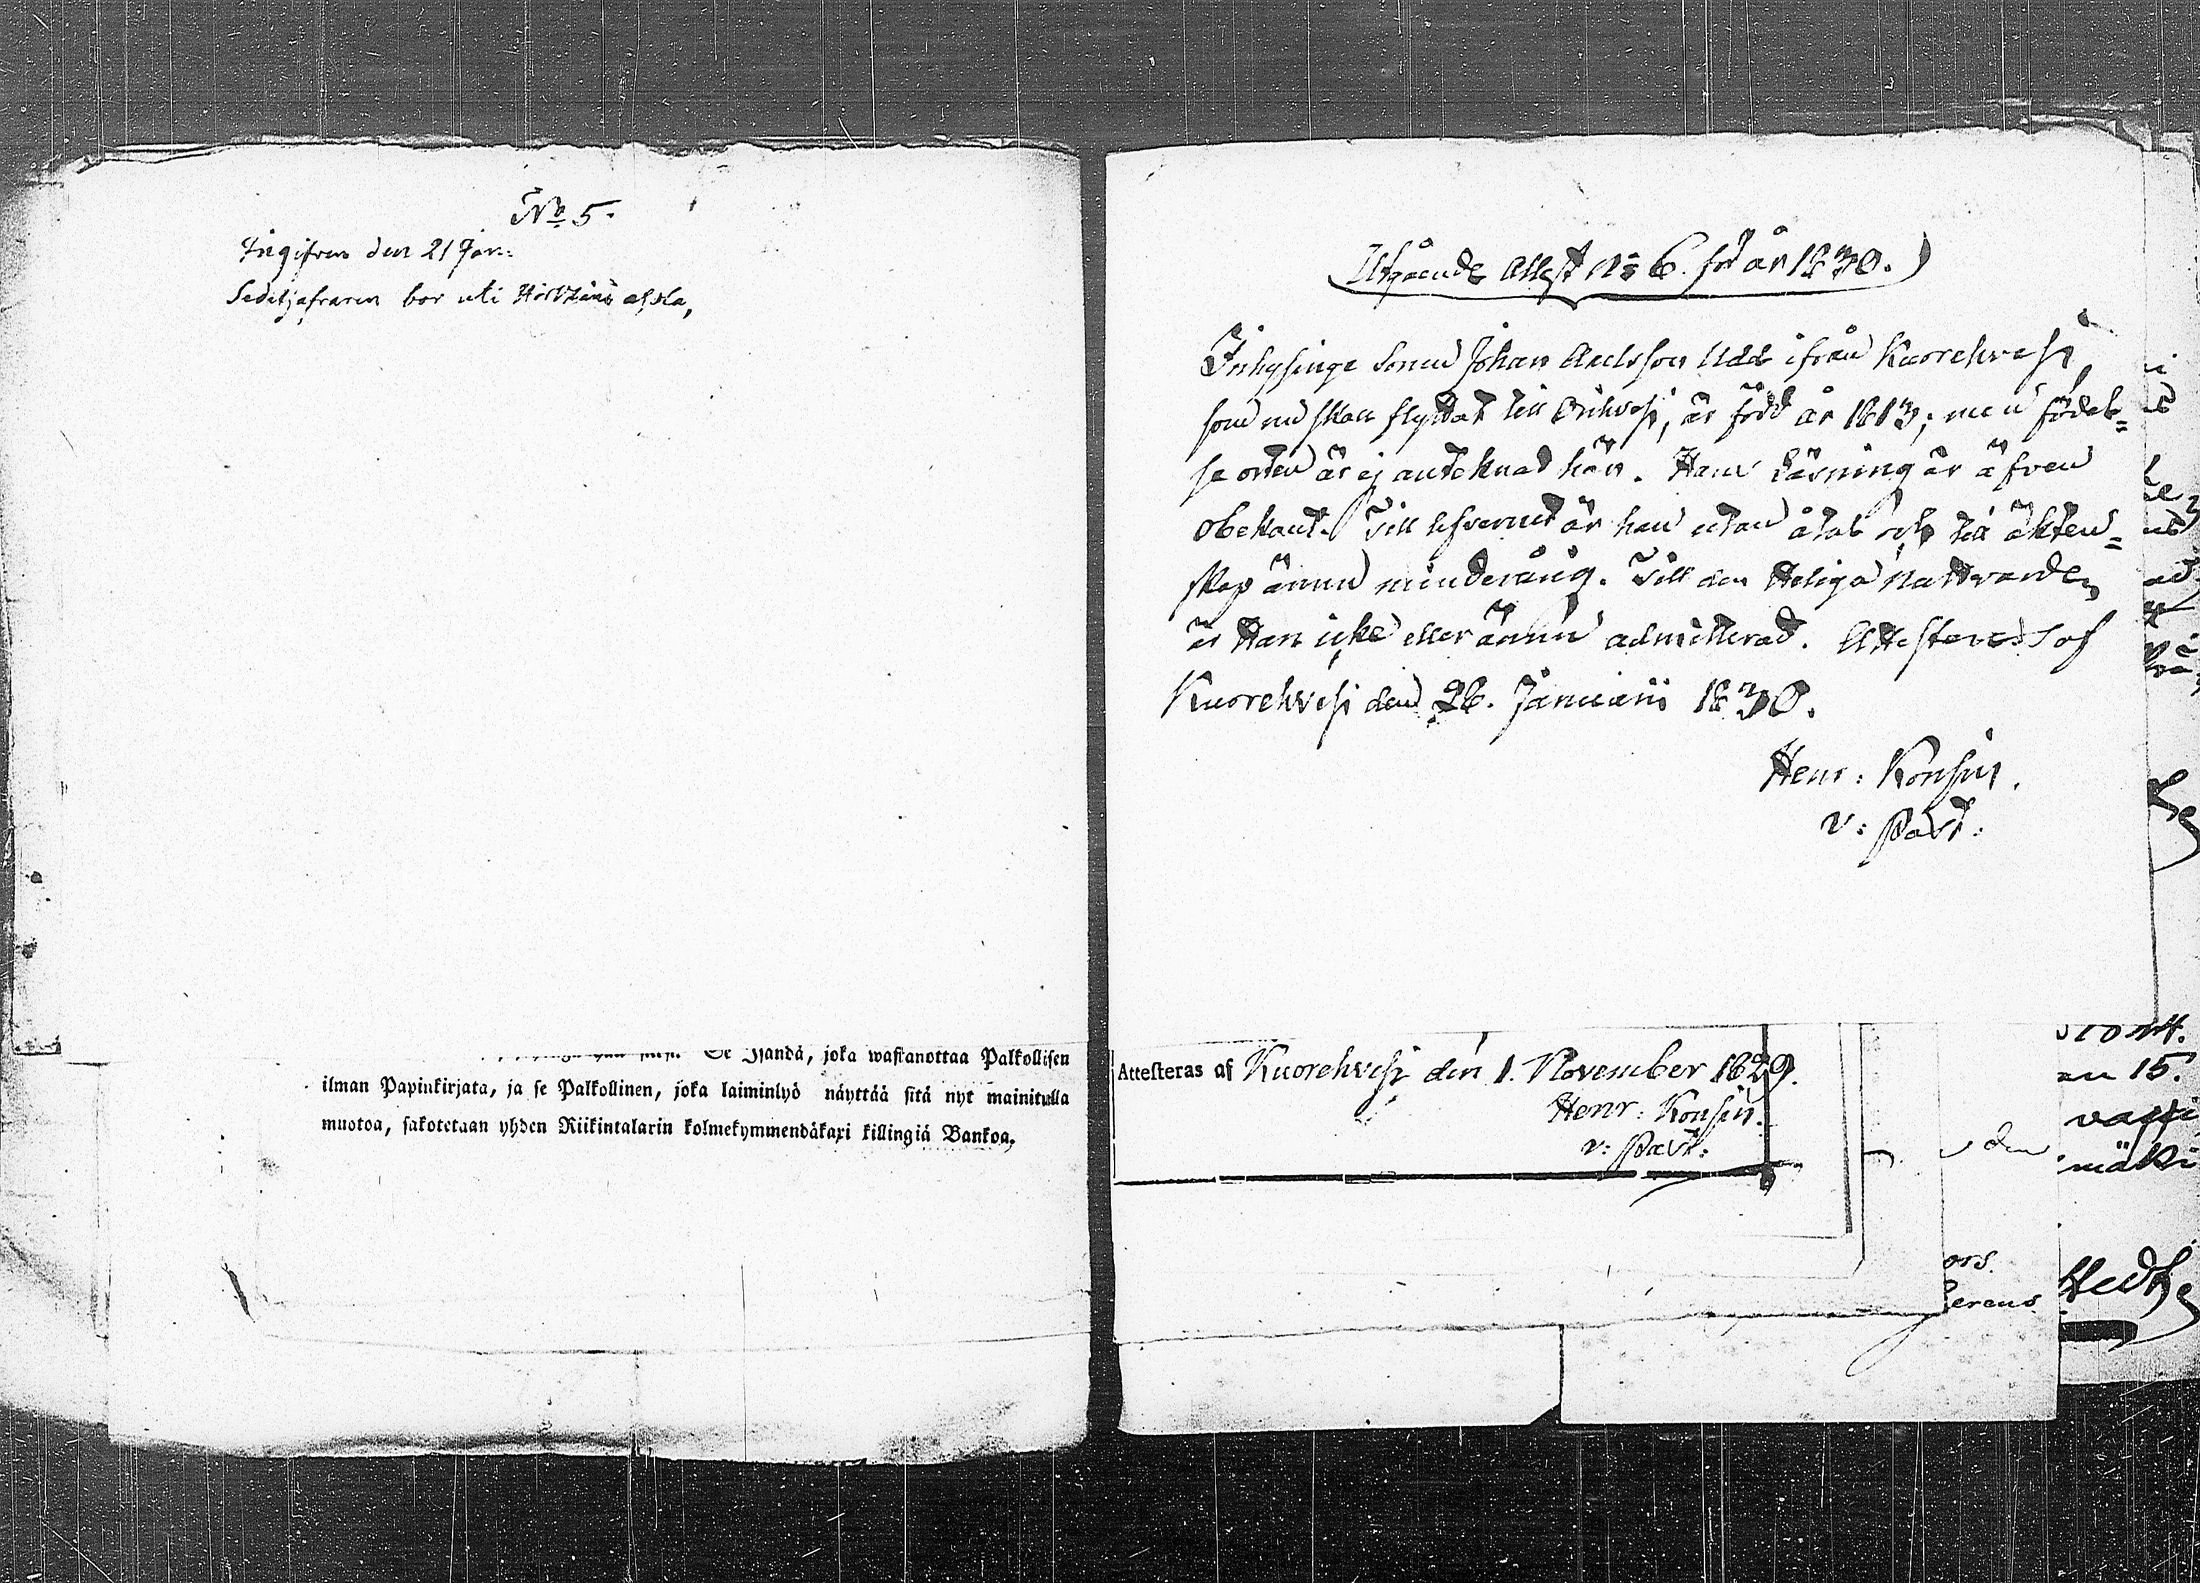 No 5.
Ingifven den 21 Jan:
bor uti
Se Isändä, joka wastanottaa Palkollisen
ilman Papinkirjata, ja se Palkollinen, joka laiminlyö näyttää sitä nyt mainitulla
muotoa, sakotetaan yhden Riikintalarin kolmekymmendäkaxi killingiä Bankoa,
Utgående Attest No 6. för år 1830.
Inhysinge Sonen Johan Axelsson Udd ifrån Kuorehvesi,
som nu skall flyttat till Orihvesi, är född år 1813; men födel=
se orten är ej anteknad här. Hans Läsning är äfven
obekant. Till lefvernet är han utan åtal och till äkten=
skap ännu minderårig. Till den Heliga Nattvarden
är Han icke eller ännu admitterad. Attesteras af
Kuorehvesi den 26. Januarii 1830.
Henr: Konsin.
v: Past:
Attesteras af Kuorehvesi den 1. November 1829.
Henr: Konsin.
v: Past:
den
15.
mäki